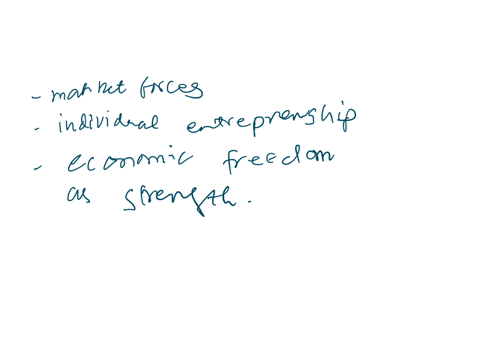 - market forces
- individual entreprenship
- economic freedom
as strength.